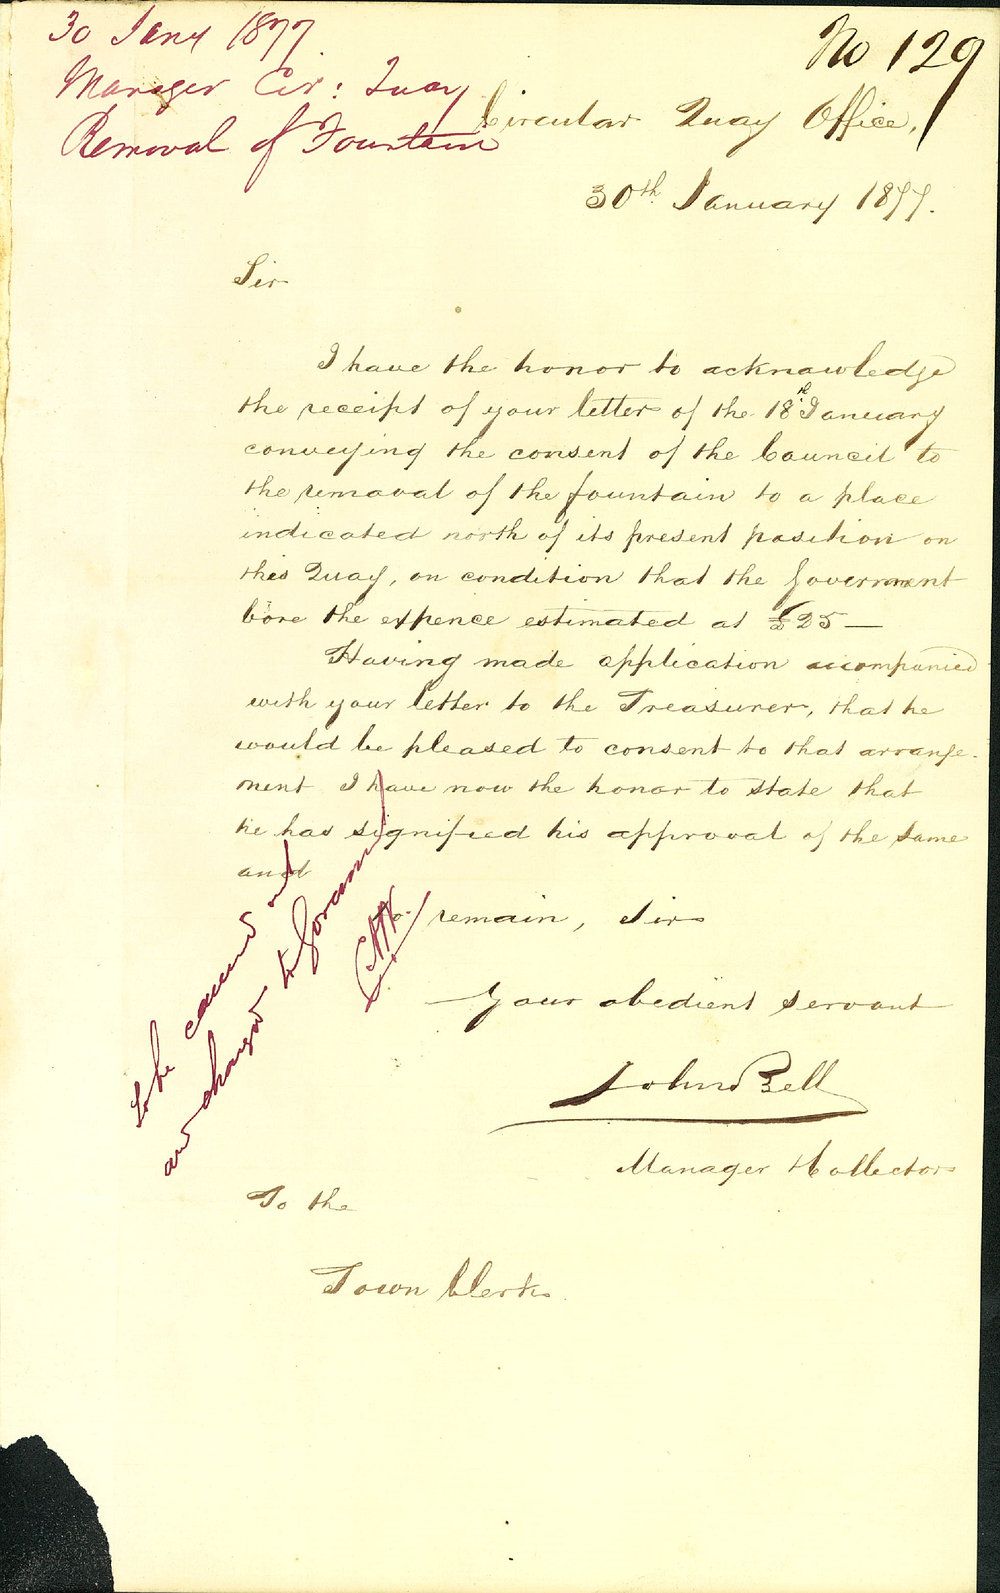 30 Jany 1877
Manager Cir: Quay
Removal of Fountain
No 129
Circular Quay Office,
30th January 1877.
Sir
I have the honor to acknowledge
the receipt of your letter of the 18th January
conveying the consent of the Council to
the removal of the fountain to a place
indicated north of its present position on
this Quay, on condition that the Government
bore the expence estimated at £25 —
Having made application accompanied
with your letter to the Treasurer, that he
would be pleased to consent to that arrange-
ment I have now the honor to state that
he has signified his approval of the same
and
To remain, Sir
Your obedient servant
John Bell
Manager & Collector
To the
Town Clerk
To be carried out
and charged to Governmt